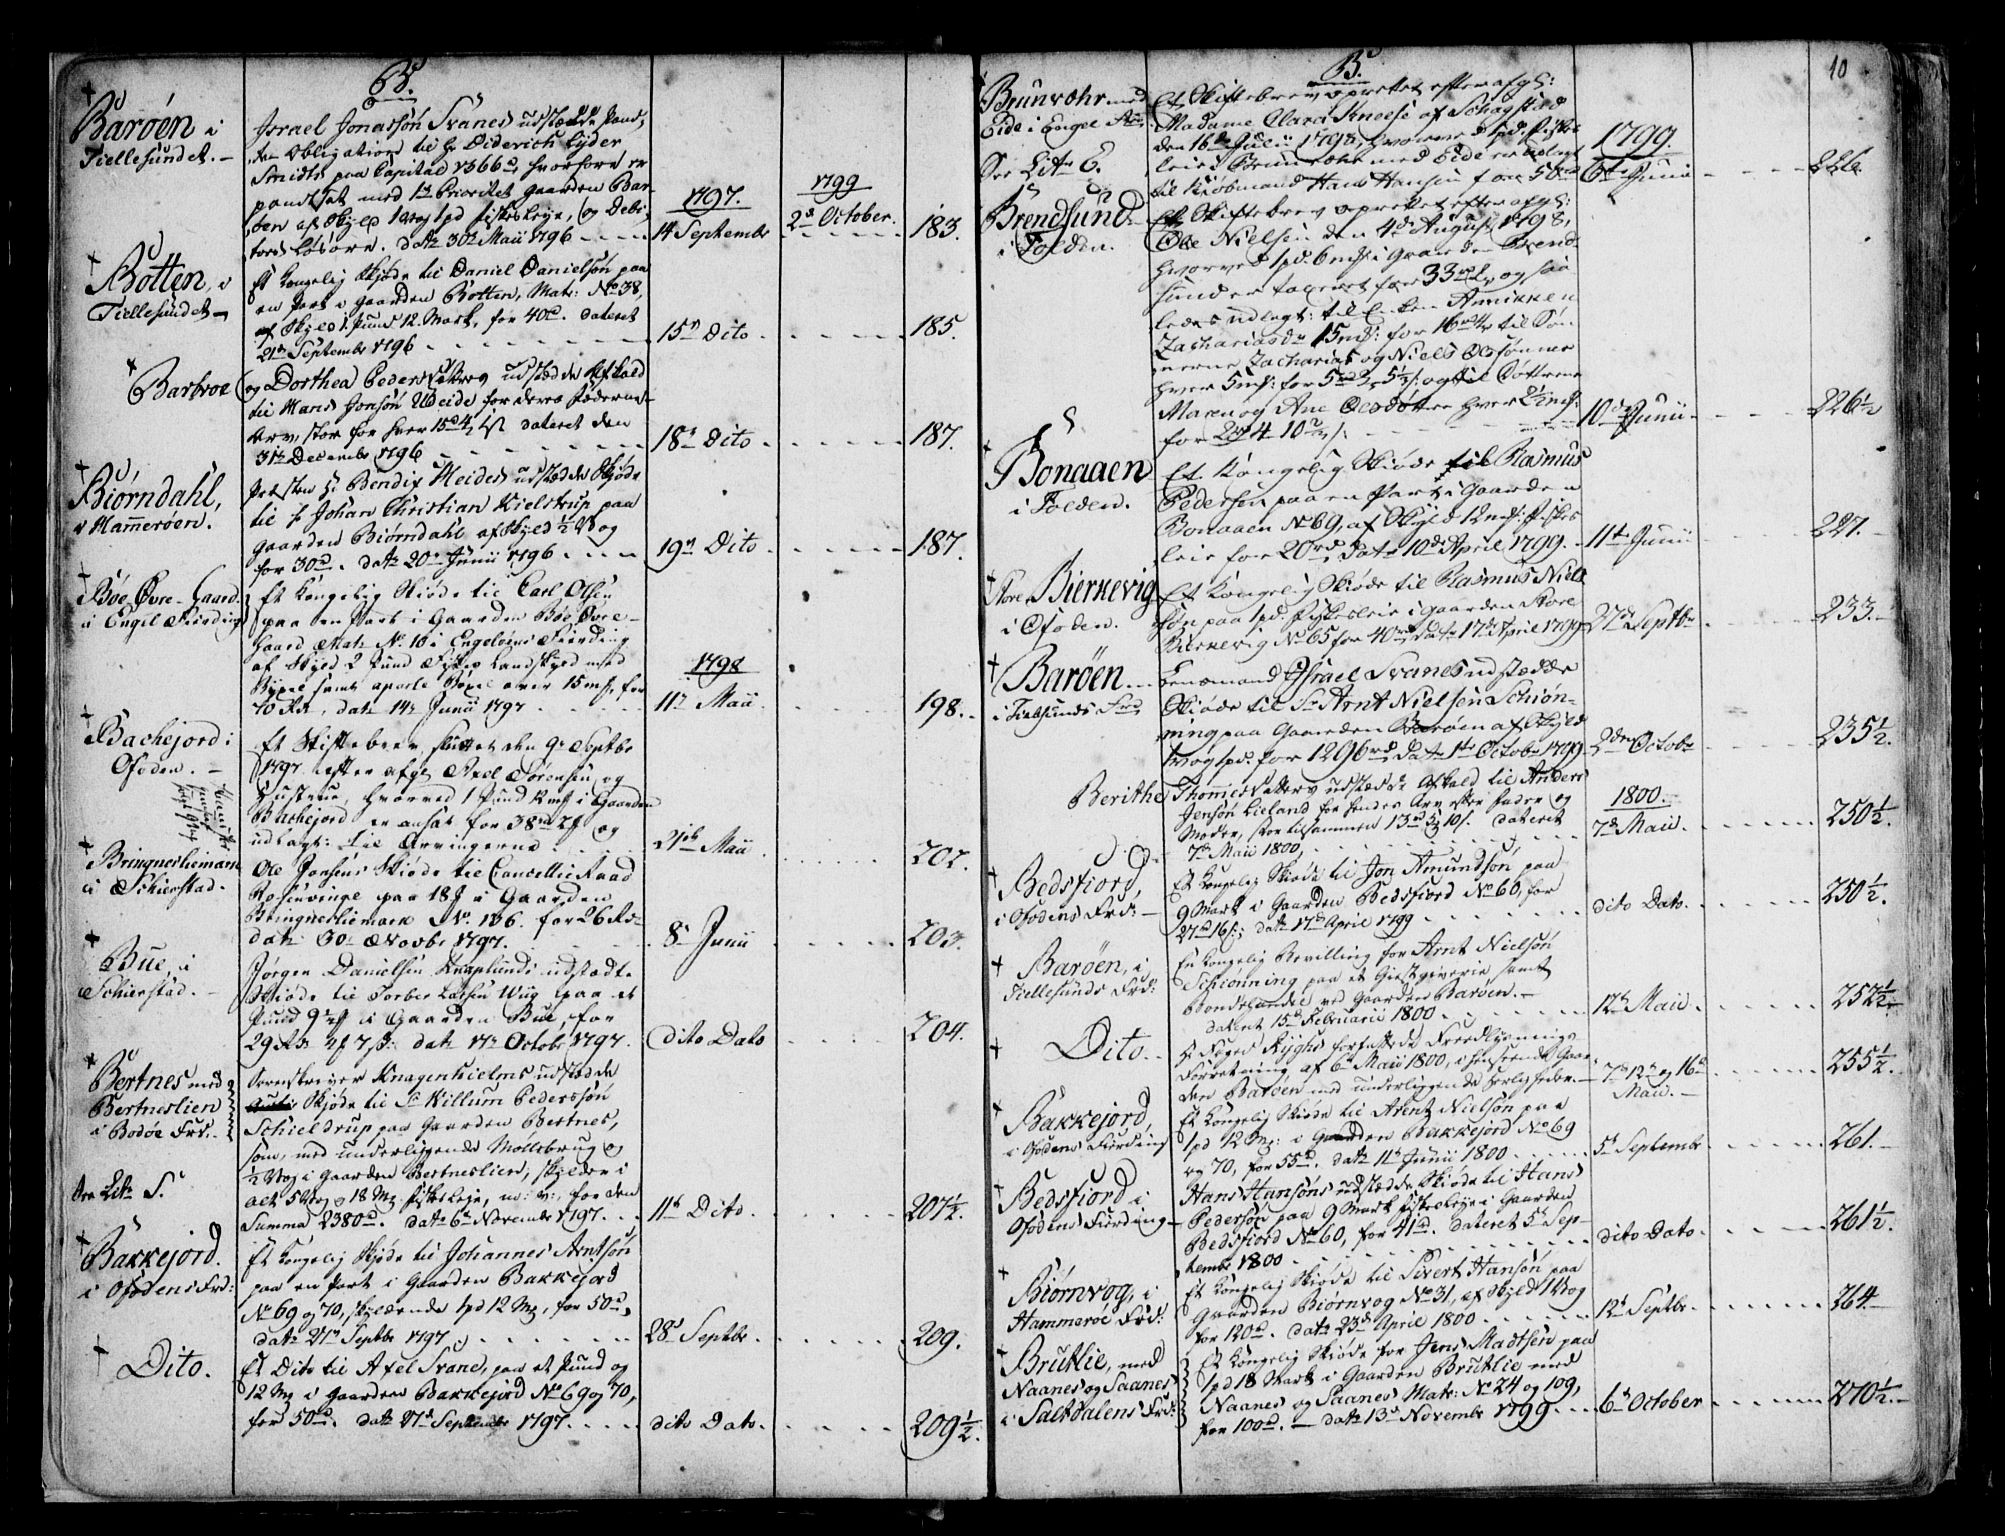 B.
Barøen i
Tiellesundet.
Israel Jonassøn Svanes udstædde Pand,
te Obligation til Hr Diderich Lyder
Smidts paa Capital 1366 d, hvorfore er
pandsat med 1ste Prioritet Gaarden Bar-
øen af Skyld 1 Vog 1 pd fiskeleje, og Debi-
tors Løsøre. Datr 30te Maii 1796
1797.
14 Septembr
1799
2den October.
183.
Botten, i
Tiellesundet
Et Kongelig Skjøde til Daniel Danielsøn paa
en Part i Gaarden Botten, Matr: No 38,
af Skyld 1 Pund 12 Mark, for 40 d. dateret
21de Septembr 1796
15n Dito
185.
Barbroe
og Dorthea Pedersdatters udstædde Afkald
til Hans Jonsøn Udeide for deres Fæderne
Arv, stor for hver 15 d dateret den
31te Decembr 1796
18n Dito
187.
Biørndahl,
i Hammerøen.
Præsten Hr Bendix Heides udstædde Skjøde
til Hr Johan Christian Kielstrup paa
Gaarden Biørndahl af Skyld 1/2 Vog
for 30 d. datr 20de Junii 1796
19n Dito
187.
Bøe Øvre-Gaard
i Engel Fierding
Et Kongelig Skiøde til Carl Olsen
paa en Part i Gaarden Bøe Øvre-
Gaard Matr No 10 i Engeløens Fierding
af Skyld 2 Pund Fiskes Landskyld med
Bøxel samt aparte Bøxel over 15 mk, for
70 Rdr, datr 14de Junii 1797
1798
11n Maii
198.
Bachejord i
Ofoden.
Et Skiftebrev, sluttet den 9de Septbr
1797 efter afg: Axel Sørensen og
Hustrue, hvorved 1 Pund 12 mk i Gaarden
Bachejord er ansat for 38 rd og
udlagt: til Arvingerne
21de Maii
202.
Bringneslimark
i Schierstad.
Ole Jonsens Skiøde til Cancellie Raad
Rosenvinge paa 18 i Gaarden
Bringneslimark No 136. for 26 Rd
datr 30 Novbr 1797.
8de Junii
203.
Bue, i
Schierstad.
Jørgen Danielsen Knaplunds udstædte
Skiøde til Torber Larsen Wiig paa et
Pund 9 i Gaarden Bue, for
29 Rd datr 17de Octobr 1797.
Dito Dato
204.
Bertnes med
Bertneslien
i Bodøe Frd.
See Litr S.
Sorenskriver Knagenhielms udstædde
Skjøde til Sr Killum Pederssøn
Schieldrup paa Gaarden Bertnes,
som, med underliggende Møllebrug og
1/2 Vog i Gaarden Bertneslien, skylder i
alt 5 Vog 18 Mk fiskeleje, for den
Summa 2380 d. datr 6te Novembr 1797.
11te Dito.
207 1/2.
Bakkejord.
i Ofodens Frd:
Et Kongelig Skjøde til Johannes Arntsøn
paa en Part i Gaarden Bakkejord
No 69 og 70, skyldende 1 pd 12 Mk, for 50 d,
datr 21de Septbr 1797.
28de Septbr.
209.
Dito.
Et Dito til Axel Svane, paa et Pund og
12 Mk i Gaarden Bakkejord No 69 og 70,
for 50 d. datr 21de Septembr 1797.
dito Dato.
209 1/2.
B.
10
Brunvohr med
Eide i Engel
See Litr E.
Et Skiftebrev oprettet efter afg:
Madame Clara Kneese af Schagstad
den 16de Julii 1798, hvorved 1 pd. Fiskes
leie i Brunvohr med Eide er udlagt
til Kiøbmand Hans Hansen for 50 rd
1799.
6te Junii
226.
Brendsund
i Folden.
Et Skiftebrev oprettet efter afg:
Ole Nielsen den 4de August 1798,
hvorved 1 pd. 6 mk i Gaarden Brend-
sund er taxeret for 33 rd og saa-
ledes udlagt: til Enken Anniken
Zachariasdr 15 mk: for 16 rd til Søn-
nerne Zacharias og Niels Olssønner
hver 5 mk: for 5 rd og til Døttrene
Maren og Ane Olsdøttre hver 2 1/2 mk:
for
10de Junii
226 1/2
Bonaaen
i Folden.
Et Kongelig Skiøde til Rasmus
Pedersen paa en Part i Gaarden
Bonaaen No 69, af Skyld 12 mk: Fiskes
leie for 20 rd, Datr 10de April 1799.
11te Junii
227.
Store Bierkevig
i Ofoden.
Et Kongelig Skiøde til Rasmus Niel-
søn paa 1 pd. Fiskesleie i Gaarden Store
Bierkevig No 65 for 40 rd Datr 17de April 1799
27de Septbr
233.
Barøen
i Tielsunds
Lensmand Israel Svanes udstædde
Skiøde til Sr Arnt Nielsen Schiøn-
ning paa Gaarden Barøen af Skyld
1 Vog 1 pd. for 1296 rd Datr 1te Octobr 1799
2den Octobr
235 1/2.
Berithe
Thommesdatters udstædde Afkald til Anders
Jensøn Lieland for hendes Arv efter Fader og
Moder, stor tilsammen 13 rd dateret
7de Maii 1800,
1800.
7de Maii.
250 1/2.
Bedsfiord,
i Ofodens Frd:
Et Kongelig Skiøde til Jon Amundsøn paa
9 Mark i Gaarden Bedsfiord No 60, for
27 d 16 s; datr 17de April 1799
dito Dato.
250 1/2.
Barøen, i
Tiellesunds Frd:
En Kongelig Bevilling for Arnt Nielsøn
Schiønning paa et Giestgiverie samt
Bondehandel ved Gaarden Barøen.
Dateret 15de Februarii 1800
12te Maii
252 1/2.
Dito.
Hr Foged Rijghs forfattede Fredlysnings
Forretning, af 6te Maii 1800, i henseende Gaar-
den Barøen med underliggende Herligheder.
7de 12te og 16de
Maii.
255 1/2.
Bakkejord,
i Ofodens Fierding
Et Kongelig Skiøde til Arent Nielsøn paa
1 pd 12 Mk: i Gaarden Bakkejord No 69
og 70, for 55 d. datr 11te Junii 1800
5te Septembr
261.
Bedsfiord i
Ofodens Fierding
Hans Hansøns udstædde Skiøde til Hans
Pedersøn paa 9 Mark fiskeleye i Gaarden
Bedsfiord No 60, for 41 d. dateret 5te Sep-
tembr 1800
dito Dato.
261 1/2.
Biørnvog, i
Hammerøe Frd:
Et Kongelig Skiøde til Sivert Hansøn paa
Gaarden Biørnvog No 31, af Skyld 1 Vog
for 120 d. datr 23de April 1800
12te Septbr.
264.
Brutlie, med
Naanes og Saanes
i Saltdalens Frd:
Et Kongelig Skiøde for Jens Madtsen paa
1 pd 18 Mark i Gaarden Brutlie med
Naanes og Saanes Matr: No 24 og 109,
for 100 d. datr 13de Novembr 1799
6te October
270 1/2.